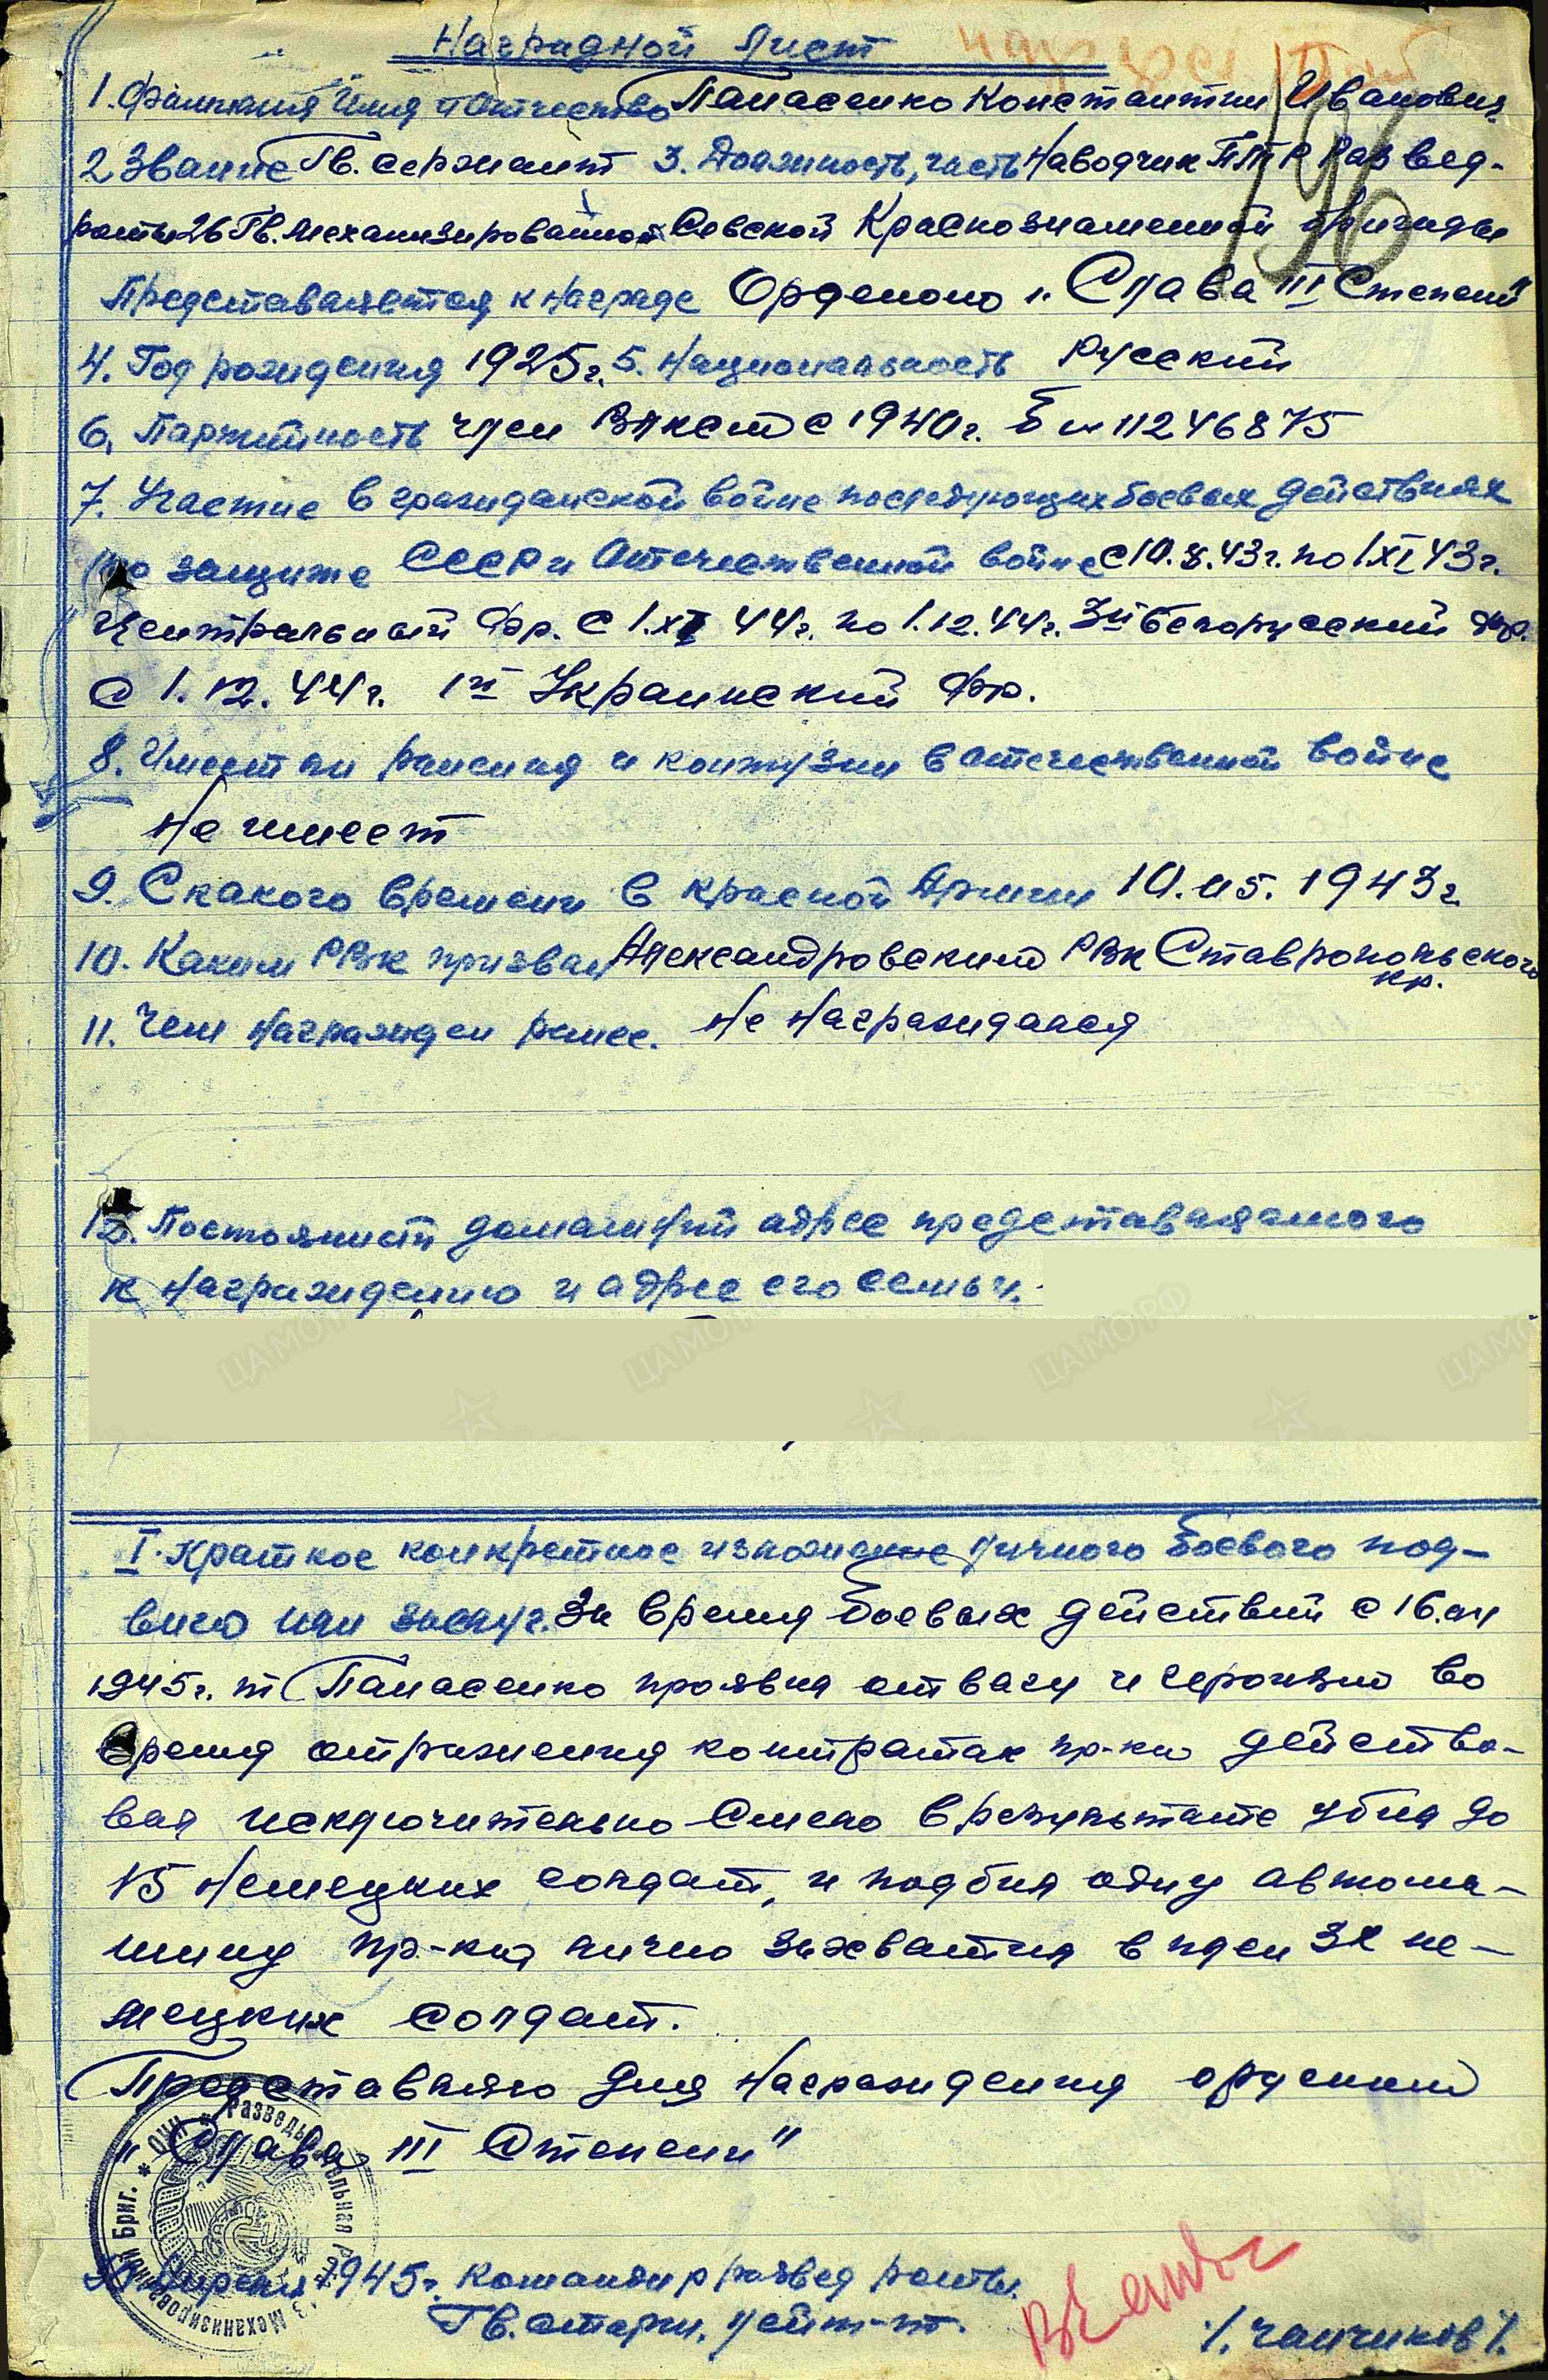 Наградной лист
1. Фамилия Имя и Отчество Панасенко Константин Иванович
2 Звание Гв. сержант 3. Должность, часть Наводчик ПТР Развед-
роты 26 Гв. Механизированной Севской Краснознаменной бригады
Представляется к награде Орденом „Слава III Степени"
4. Год рождения 1925г. 5. Национальность Русский
6. Партийность член ВЛКСМ с 1940г. Б № 11246875
7. Участие в гражданской войне последующих боевых действиях
по защите СССР и Отечественной войне с 10.8.43г. по 1.XI 43г.
Центральный Фр. с 1.XI 44г. по 1.12.44г. 3й Белорусский Фр.
с 1.12.44г. 1й Украинский Фр.
8. Имеет ли ранения и контузии в отечественной войне
Не имеет
9. С какого времени в красной Армии 10.05.1943г.
10. Каким РВК призван Александровским РВК Ставропольского
кр.
11. Чем награжден ранее. Не Награждался
12. Постоянный домашний адрес представляемого
к награждению и адрес его семьи.
ЦАМО.РФ ЦАМО.РФ ЦАМО.РФ ЦАМО.РФ
I. Краткое конкретное изложение личного боевого под-
вига или заслуг. За время боевых действий с 16.04
1945г. т Панасенко проявил отвагу и героизм во
время отражения контратак пр-ка действо-
вал исключительно смело в результате убил до
15 Немецких солдат, и подбил одну автома-
шину пр-ка, лично захватил в плен 32 не-
мецких солдат.
Представляю для Награждения орденом
„Слава III Степени"
Апреля 1945г. Командир развед роты.
Гв. старш. лейт-нт. /Чанчиков/.
Разведывательная Механизированной Бриг.